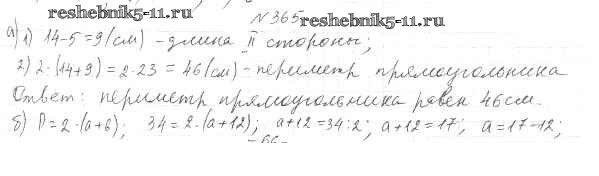 reshebnik5-11.ru
№365 reshebnik5-11.ru
а) 1) 14-5=9(см) - длина II стороны;
2) 2·(14+9)=2·23=46(см) - периметр прямоугольника
Ответ: периметр прямоугольника равен 46см.
б) P=2·(a+b); 34=2·(a+12); a+12=34:2; a+12=17; a=17-12;
-66-